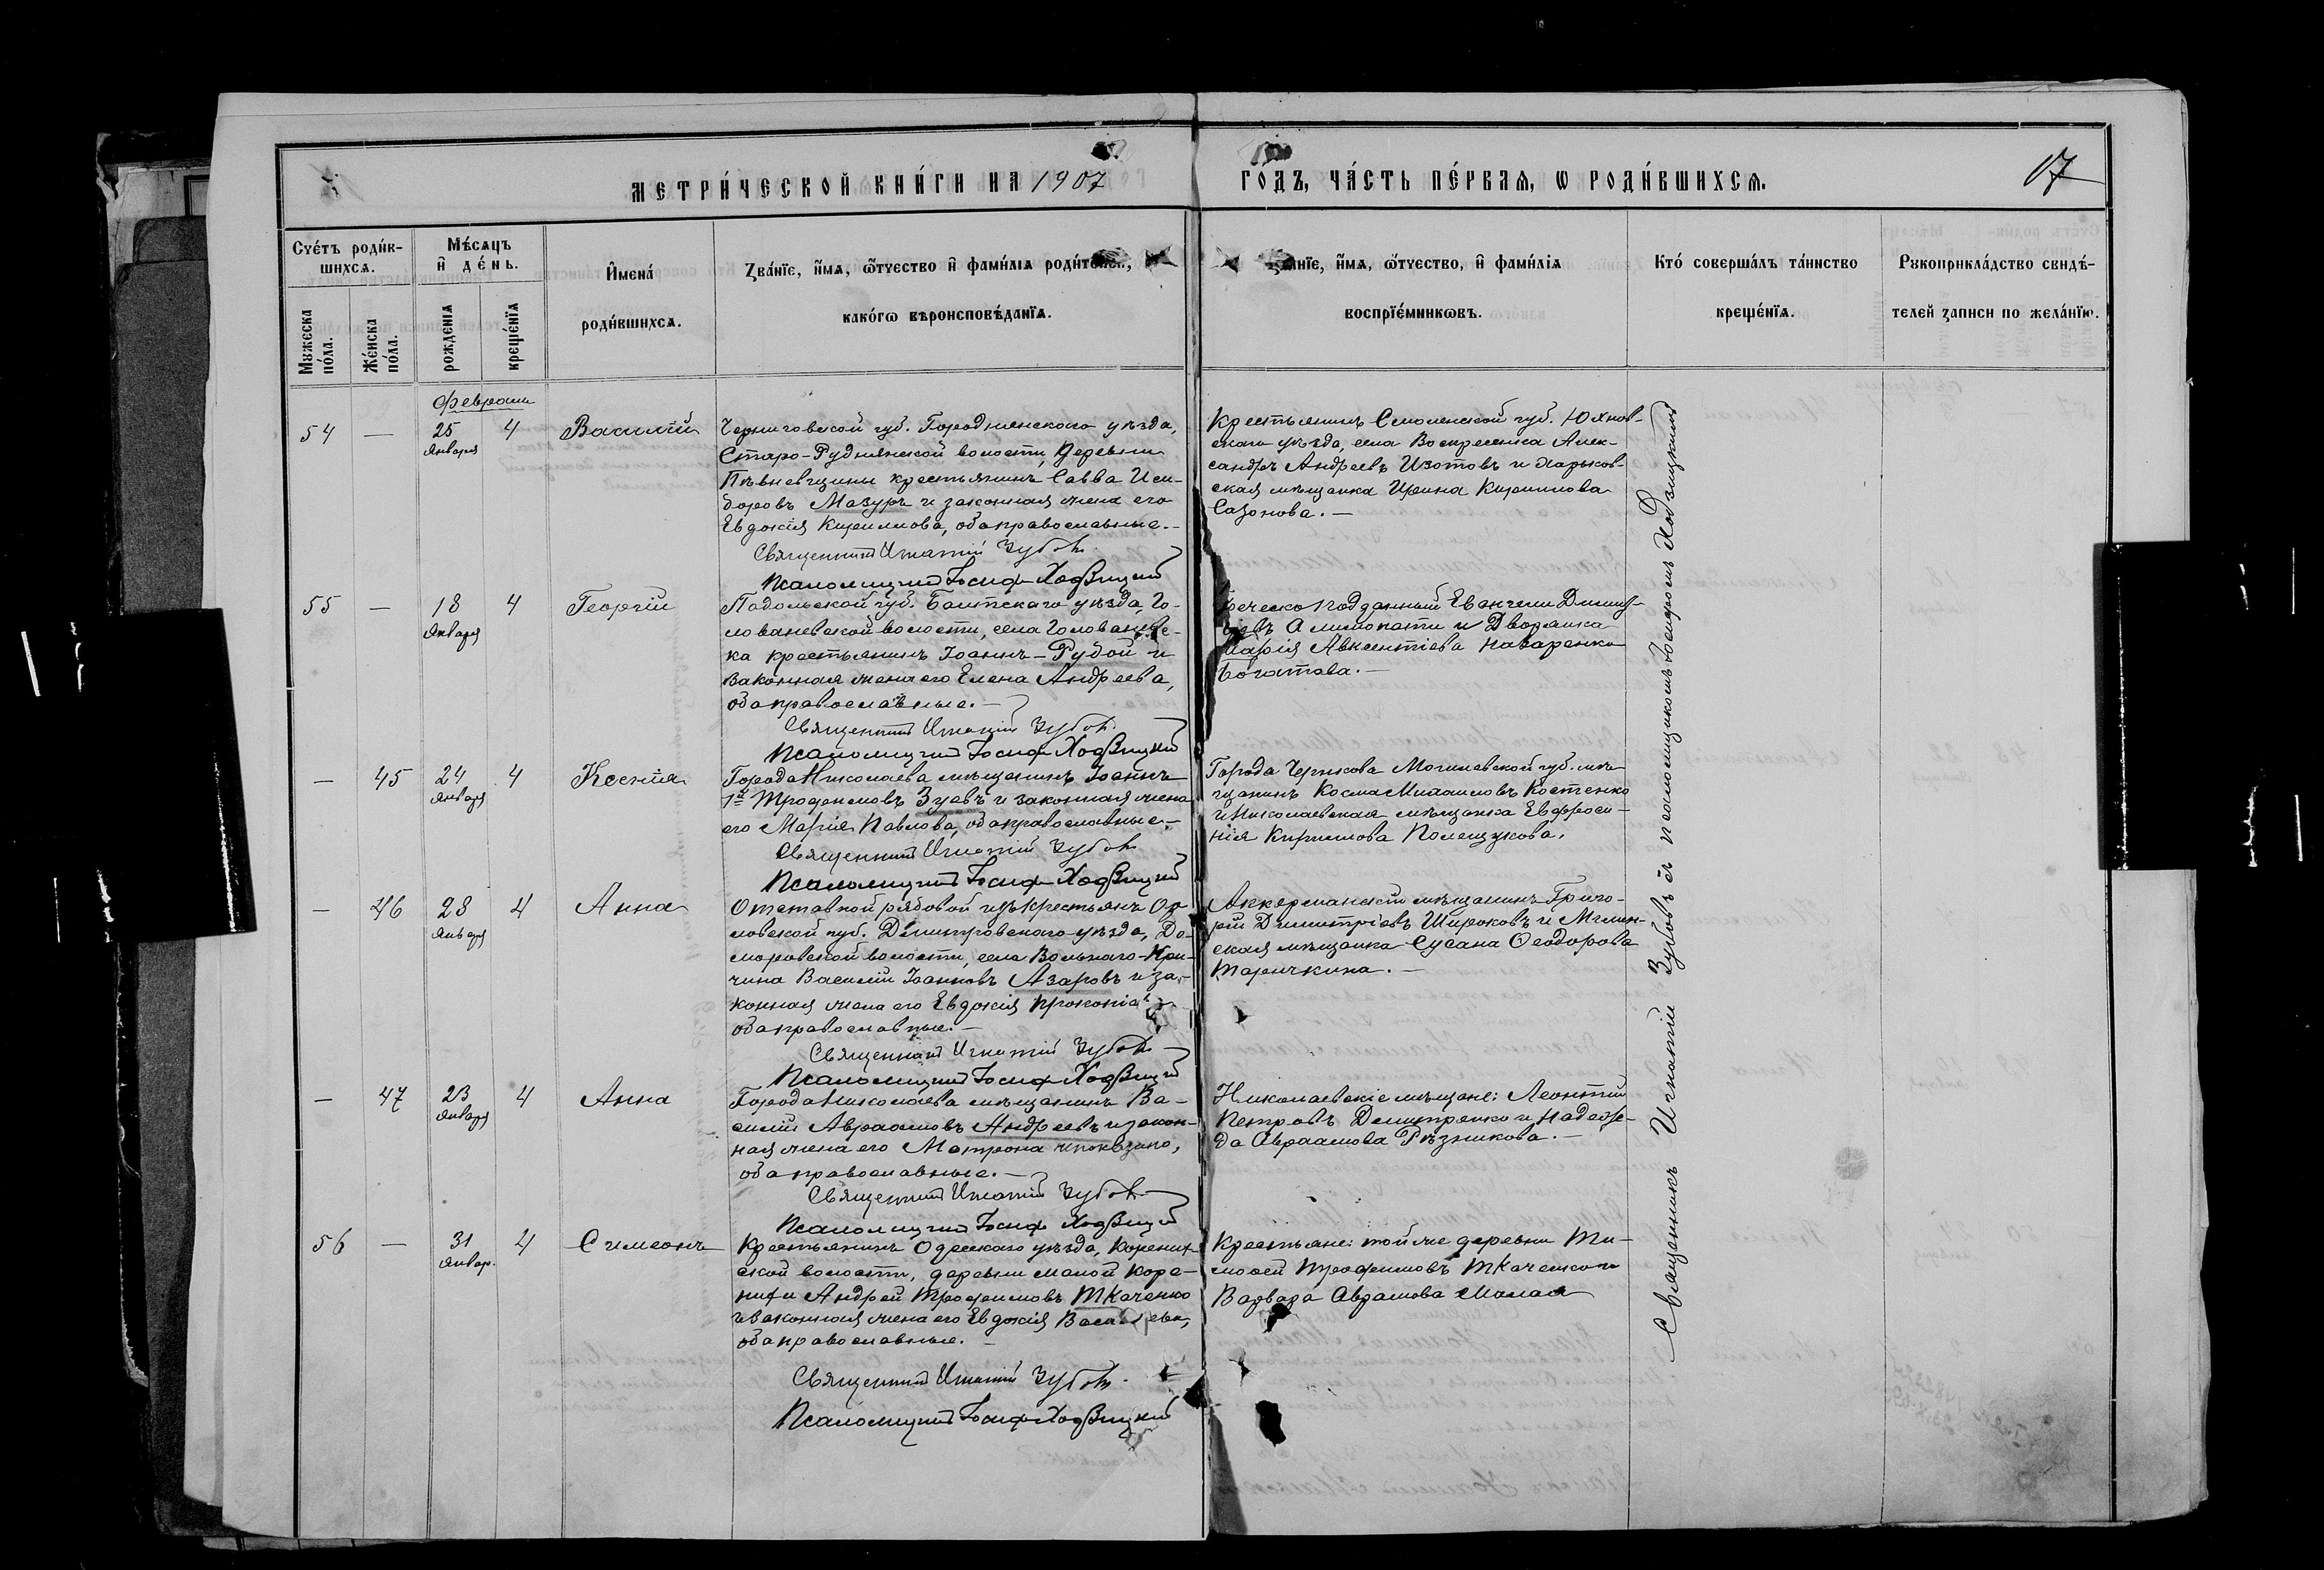 МЕТРИ́ЧЕСКОЙ КНИ́ГИ НА 1907
ГО́ДЪ, ЧА́СТЬ ПЕ́РВАѦ, Ѡ РОДИ́ВШИХСѦ.
17
Сче́тъ роди́в-
шихсѧ.
Мꙋжеска
по́ла.
Же́нска
по́ла.
Мѣ́сѧцъ
и҆ де́нь.
рожденїѧ
креще́нїѧ
И҆мена́
роди́вшихсѧ.
Зва́нїе, и҆́мѧ, ѻ҆́тчество и҆ фами́лїѧ роди́телей,
како́гѡ вѣроисповѣ́данїѧ.
Зва́нїе, и҆́мѧ, ѻ҆́тчество, и҆ фами́лїѧ
воспрїе́мникѡвъ.
Кто́ соверша́лъ та́инство
креще́нїѧ.
Рꙋкоприкла́дство свидѣ́-
телей записи по жела́нїю.
Февраля
54 — 25 Января 4 Василій
Черниговской губ. Городнянскаго уѣзда,
Старо-Руднянской волости, деревни
Пѣвневщины крестьянинъ Савва Иси-
доровъ Мазуръ и законная жена его
Евдокія Кириллова, оба православные.-
Священникъ Игнатій Зубовъ
Псаломщикъ Іосифъ Ходзицкій
Крестьянинъ Смоленской губ. Юхнов-
скаго уѣзда, села Воскресенска Алек-
сандръ Андреевъ Изотовъ и Харьков-
ская мѣщанка Ирина Кириллова
Сазонова. —
55 — 18 Января 4 Георгій
Подольской губ. Балтскаго уѣзда, Го-
лованевской волости, села Голованев-
ка крестьянинъ Іоаннъ — Рудой и
законная жена его Елена Андреева,
оба православные. —
Священникъ Игнатій Зубовъ
Псаломщикъ Іосифъ Ходзицкій
Греческо подданный Евангели
и Дворянка
Марія Авксентіева Назаренко
Богатова. —
— 45 24 Января 4 Ксенія
Города Николаева мѣщанинъ Іоаннъ
Зуевъ и законная жена
его Марія Павлова, оба православные.-
Священникъ Игнатій Зубовъ
Псаломщикъ Іосифъ Ходзицкій
Города Черикова Могилевской губ. мѣ-
щанинъ Косма Михаиловъ Костенко
и Николаевская мѣщанка Евфроси-
нія Кириллова Полещукова.
— 46 28 Января 4 Анна
Отставной рядовой изъ крестьянъ Ор-
ловской губ. Дмитровскаго уѣзда, До-
моровской волости, села Вольнаго-Кри-
чина Василій Іоанновъ Азаровъ и за-
конная жена его Евдокія Прокопіева
оба православные. —
Священникъ Игнатій Зубовъ
Псаломщикъ Іосифъ Ходзицкій
Аккерманскій мѣщанинъ Григо-
рій Димитріевъ Широковъ и Мглин-
ская мѣщанка Сусана Ѳеодорова
Таричкина. —
— 47 23 Января 4 Анна
Города Николаева мѣщанинъ Ва-
силій Авраамовъ Андреевъ и закон-
ная жена его Матрона
оба православные. —
Священникъ Игнатій Зубовъ
Псаломщикъ Іосифъ Ходзицкій
Николаевскіе мѣщане: Леонтій
Петровъ Димитренко и Надеж-
да Авраамова Рѣзникова. —
56 — 31 Январ. 4 Симеонъ
Крестьянинъ Одесскаго уѣзда, Корених-
ской волости, деревни Малой Коре-
нихи Андрей Трофимовъ Ткаченко
и законная жена его Евдокія Васильева,
оба православные. —
Священникъ Игнатій Зубовъ.
Псаломщикъ Іосифъ Ходзицкій
Крестьяне: той же деревни Ти-
мофей Трофимовъ Ткаченко и
Варвара Аврамова Малая
Священникъ Игнатій Зубовъ съ псаломщикомъ Іосифомъ Ходзицкимъ